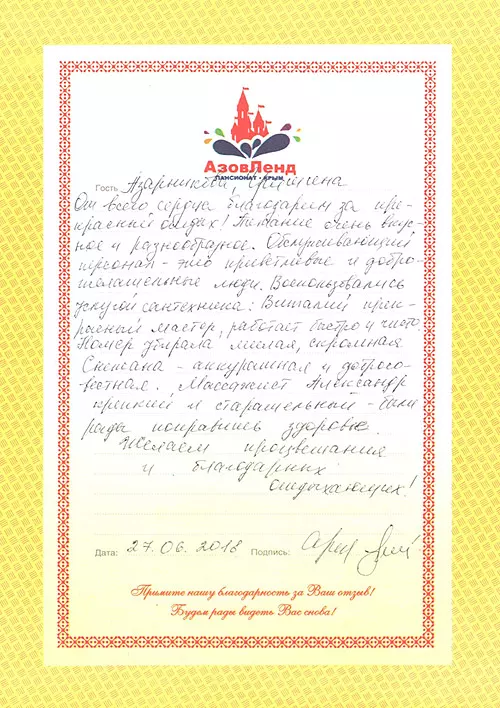 АзовЛенд
ПАНСИОНАТ • КРЫМ
Гость Азарникови,
От всего сердца благодарим за пре-
красный отдых! Питание очень вкус-
ное и разнообразное. Обслуживающий
персонал - это приветливые и добро-
желательные люди. Воспользовались
услугой сантехника: Виталий прек-
расный мастер, работает быстро и чисто.
Номер убирала милая, скромная
Светлана - аккуратная и добросо-
вестная. Массажист Александр
крепкий и старательный - были
рады поправить здоровье.
Желаем процветания
и благодарных
отдыхающих!
Дата: 27.06.2018 Подпись:
Примите нашу благодарность за Ваш отзыв!
Будем рады видеть Вас снова!